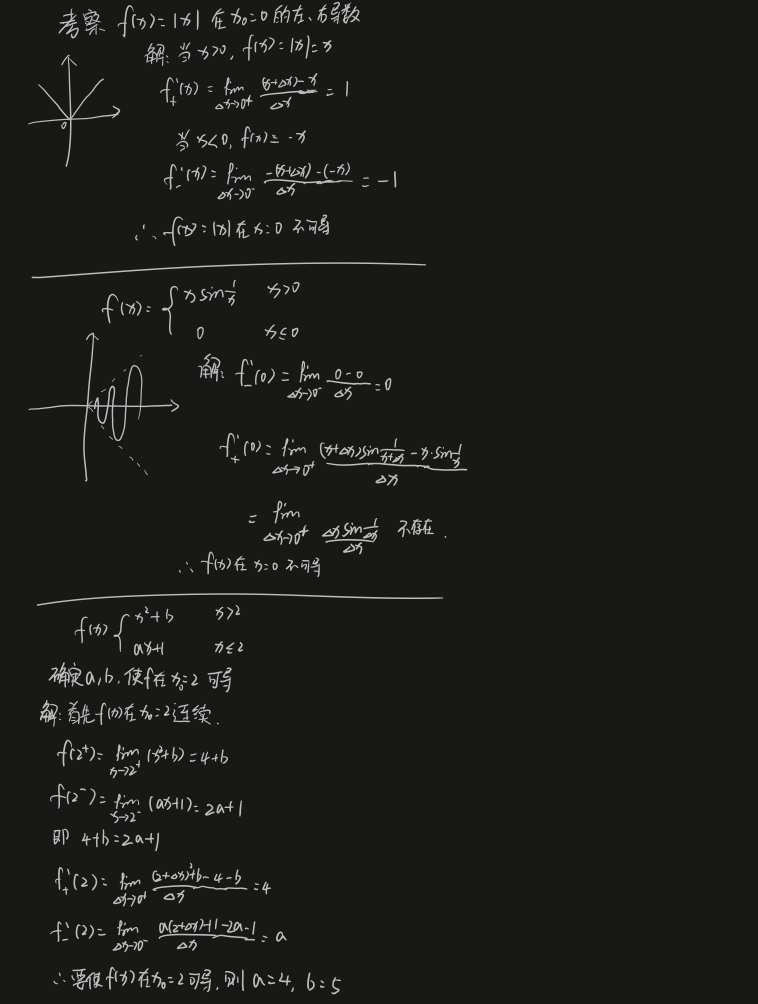 考察 f(x)=|x| 在 x₀=0 的左、右导数
解: 当 x>0, f(x)=|x|=x
f₊'(x) = lim_{Δx→0⁺} ((x+Δx)-x)/Δx = 1
当 x<0, f(x)=-x
f₋'(x) = lim_{Δx→0⁻} (-(x+Δx)-(-x))/Δx = -1
0
∴ f(x)=|x| 在 x=0 不可导
f(x)= { x sin 1/x  x>0
0  x≤0
解: f₋'(0) = lim_{Δx→0⁻} (0-0)/Δx = 0
f₊'(0) = lim_{Δx→0⁺} ((x+Δx)sin 1/(x+Δx) - x·sin 1/x)/Δx
= lim_{Δx→0⁺} (Δx sin 1/Δx)/Δx 不存在.
∴ f(x) 在 x=0 不可导
f(x) { x²+b  x>2
ax+1  x≤2
确定a,b.使f在x₀=2 可导
解:首先f(x)在x₀=2连续.
f(2⁺)= lim_{x→2⁺} (x²+b) = 4+b
f(2⁻)= lim_{x→2⁻} (ax+1) = 2a+1
即 4+b=2a+1
f₊'(2)= lim_{Δx→0⁺} ((2+Δx)²+b-4-b)/Δx = 4
f₋'(2)= lim_{Δx→0⁻} (a(2+Δx)+1-2a-1)/Δx = a
∴要使f(x)在x₀=2可导,则 a=4, b=5